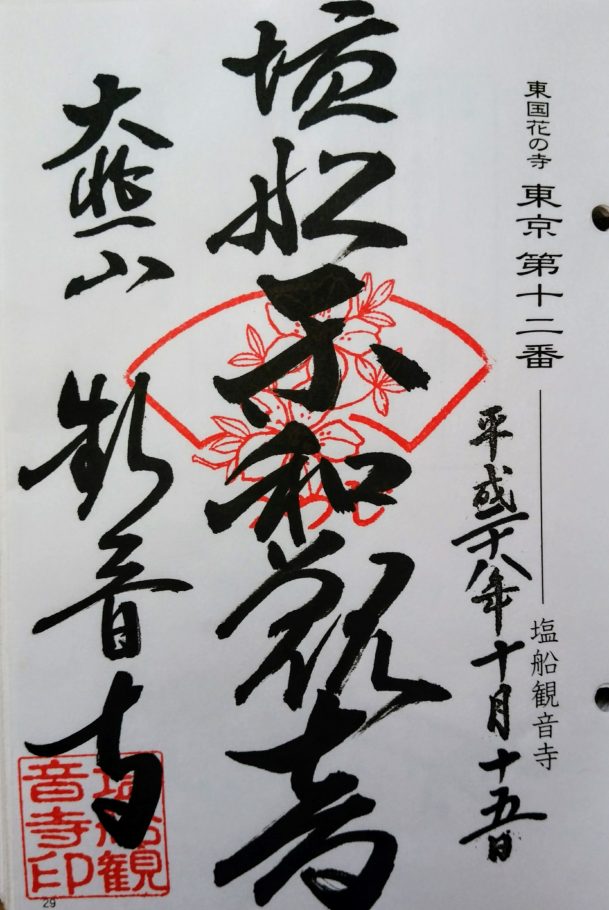 東国花の寺 東京 第十二番 ── 塩船観音寺
平成二十八年十月十五日
塩船平和観音
大悲山 観音寺
塩船観
音寺印
29